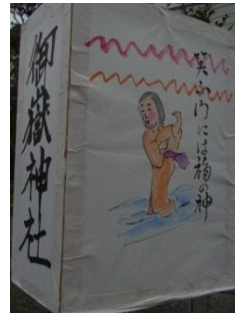 御嶽神社
笑ふ門には福の神